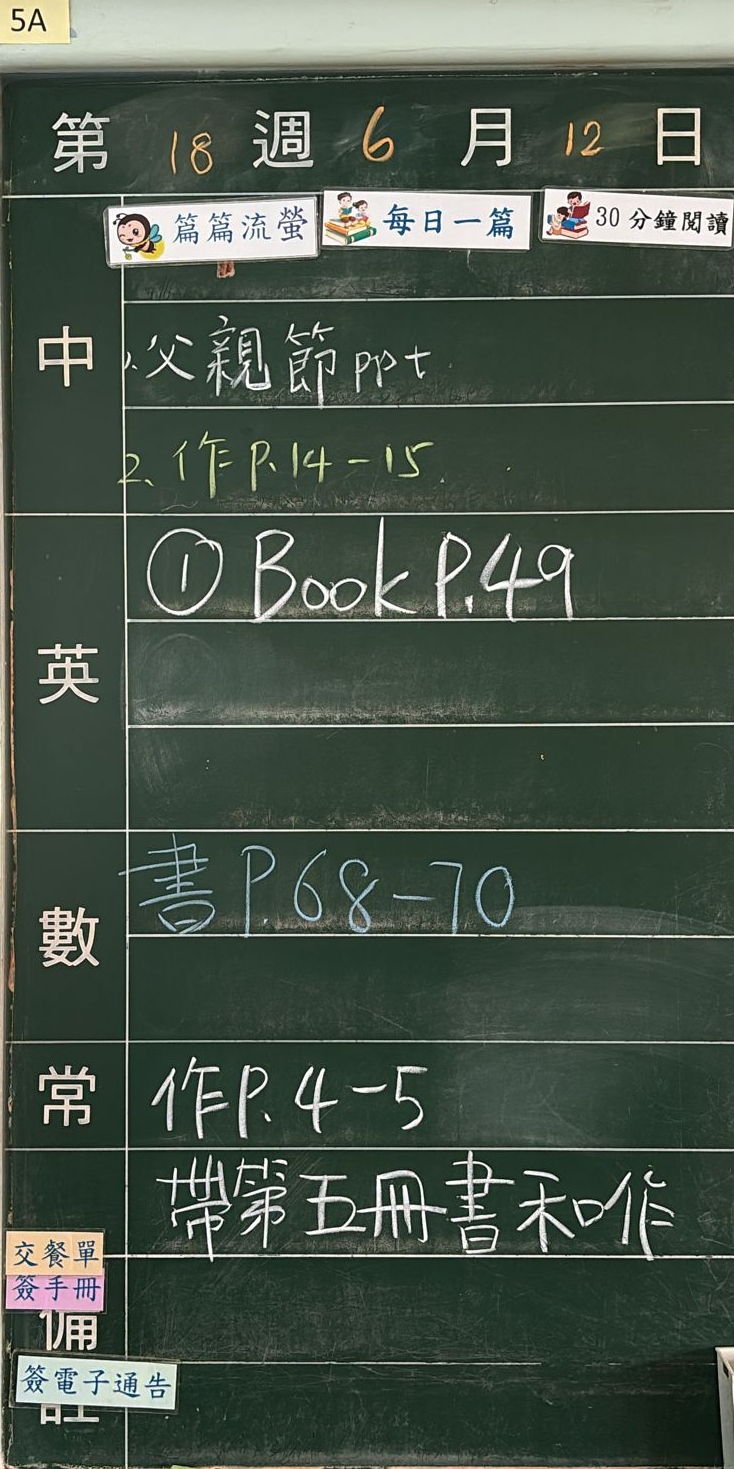 5A
第 18 週 6 月 12 日
篇篇流螢 每日一篇 30分鐘閱讀
中
1.父親節ppt
2.作P.14-15
英
① Book P.49
數
書P.68-70
常
作P.4-5
帶第五冊書和作
交餐單
簽手冊
備
簽電子通告
註